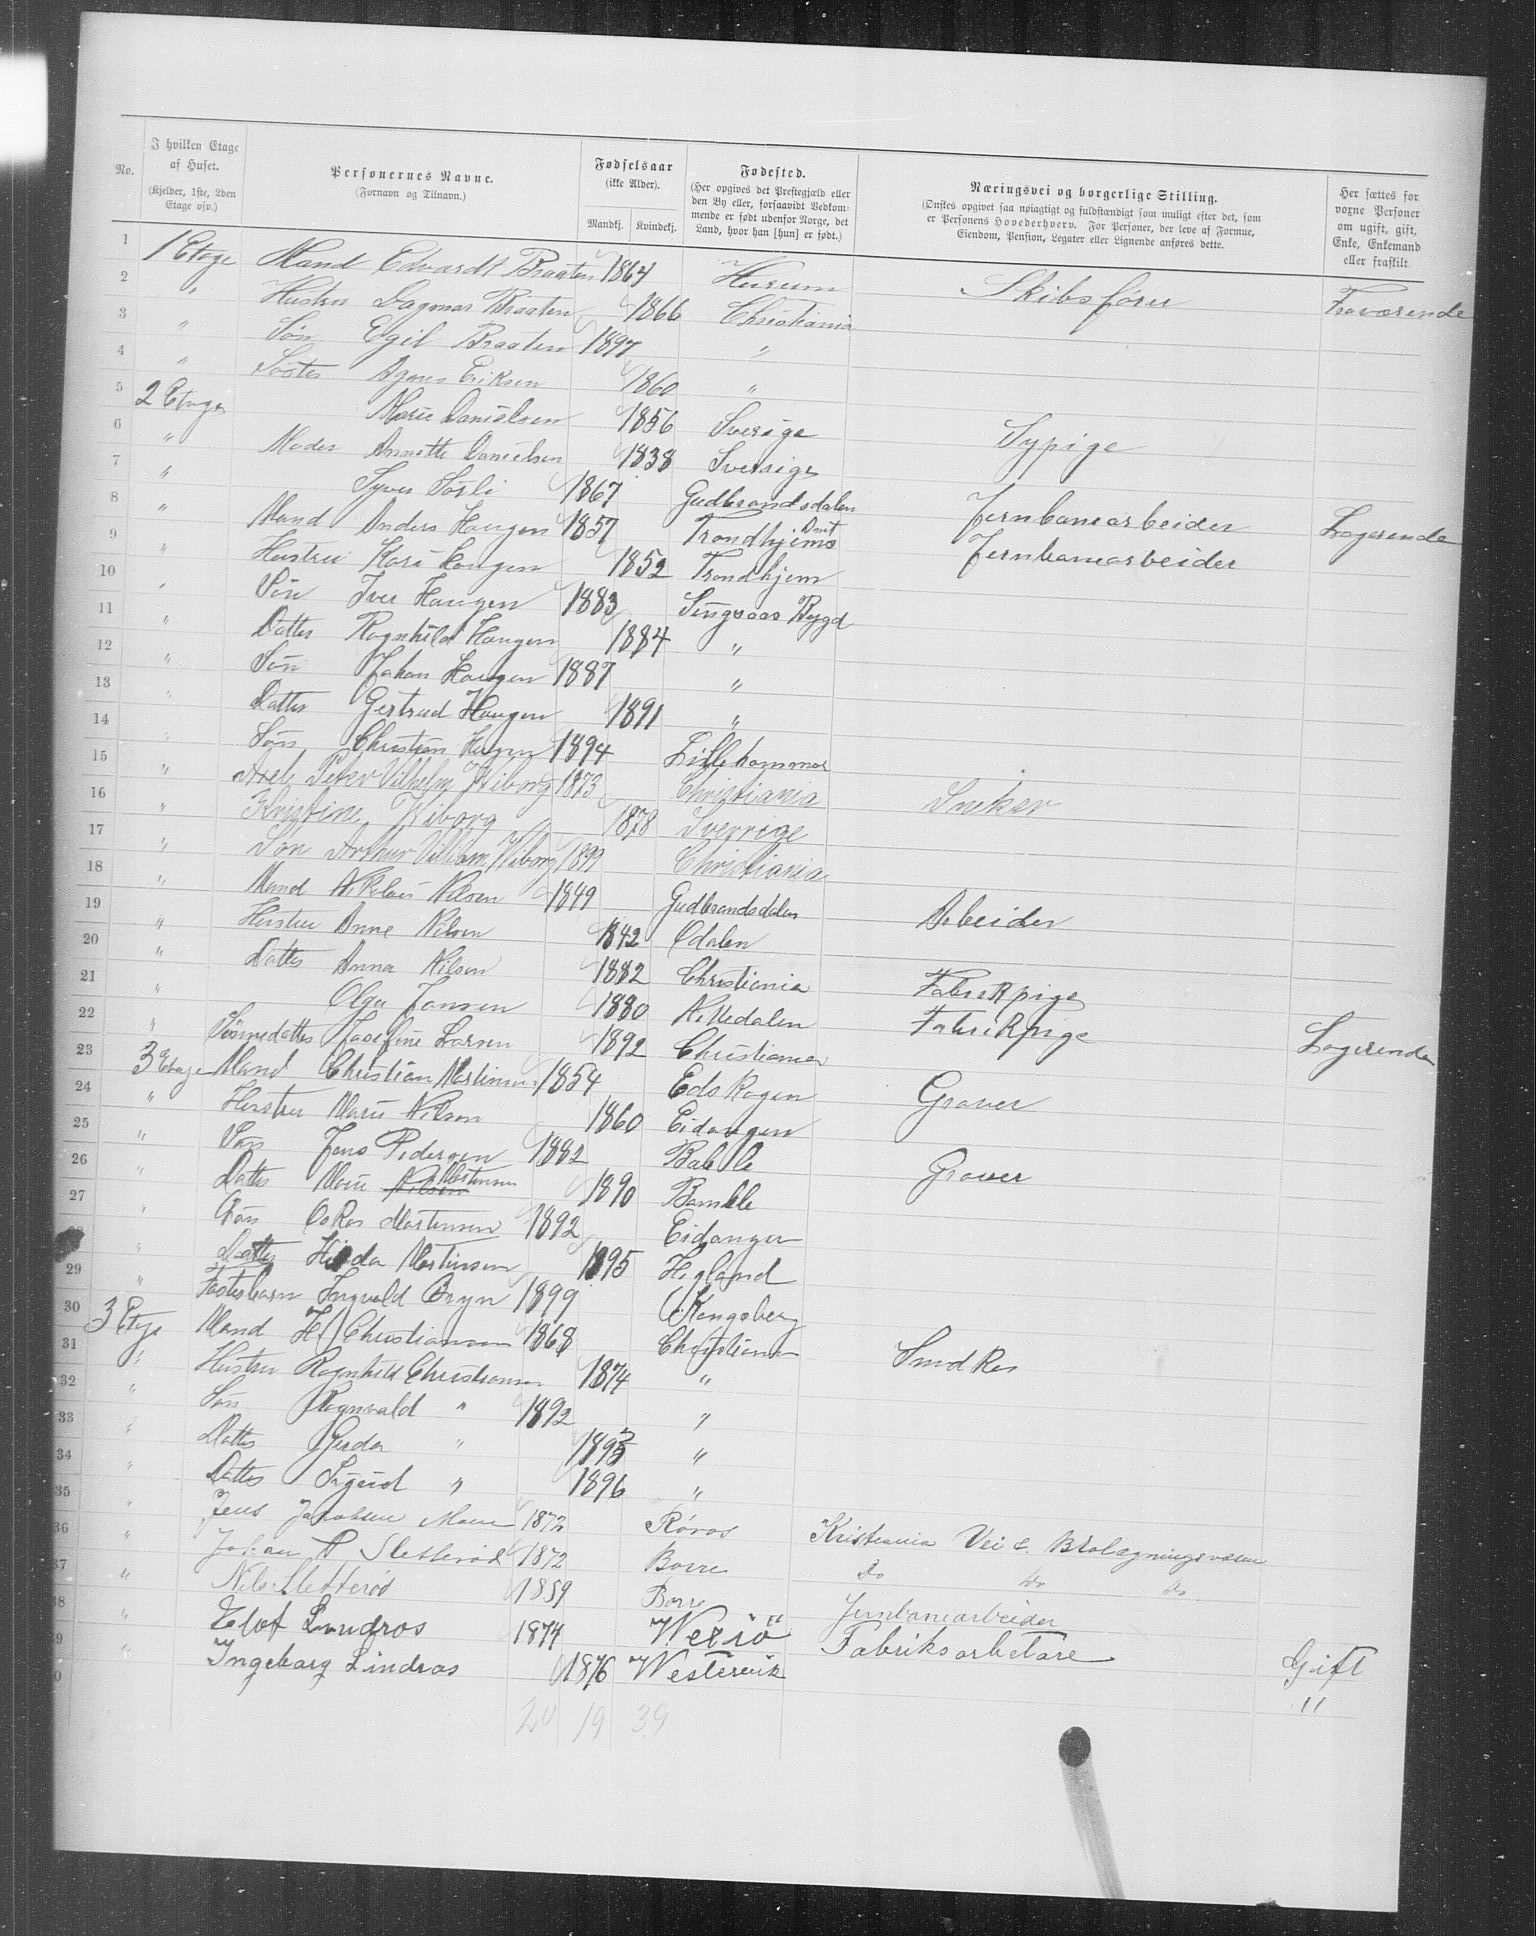 No. | I hvilken Etage af Huset. (Kjelder, 1ste, 2den Etage osv.) | Personernes Navne. (Fornavn og Tilnavn.) | Fødselsaar (ikke Alder). Mandkj. Kvindekj. | Fødested. (Her opgives det Prestegjæld eller den By eller, forsaavidt Vedkommende er født udenfor Norge, det Land, hvor han [hun] er født.) | Næringsvei og borgerlige Stilling. (Ønskes opgivet saa nøiagtigt og fuldstændigt som muligt efter det, som er Personens Hovederhverv. For Personer, der leve af Formue, Eiendom, Pension, Legater eller Lignende anføres dette. | Her sættes for voxne Personer om ugift, gift, Enke, Enkemand eller fraskilt.
1 1 Etage Mand Edvardt Braaten 1864 Hurum Skibsfører Fraværende
2 " Hustru Dagmar Braaten 1866 Christiania
3 " Søn Egil Braaten 1897 "
4 " Søster Agnes Eriksen 1860 "
5 2 Etage Marie Danielsen 1856 Sverige Sypige
6 " Moder Annette Danielsen 1838 Sverige
7 " Syver Sørli 1867 Gudbrandsdalen Jernbanearbeider Logerende
8 " Mand Anders Haugen 1857 Trondhjems Amt Jernbanearbeider
9 " Hustru Kari Haugen 1852 Trondhjem
10 " Søn Iver Haugen 1883 Singsaas Bygd
11 " Datter Ragnhild Haugen 1884 "
12 " Søn Johan Haugen 1887 "
13 " Datter Gertrud Haugen 1891 "
14 " Søn Christian Haugen 1894 Lillehammer
15 " Axel Peter Vilhelm Wiborg 1873 Christiania Sneker
16 " Kristine Wiborg 1878 Sverrige
17 " Søn Arthur Villiam Wiborg 1899 Christiania
18 " Mand Nikolai Nilsen 1849 Gudbrandsdalen Arbeider
19 " Hustru Anne Nilsen 1842 Odalen
20 " Datter Anna Nilsen 1882 Christiania Fabrikpige
21 " Olga Jansen 1880 Nittedalen Fabrikpige Logerende
22 " Sønnedatter Josefine Larsen 1892 Christiania
23 3 Etage Mand Christian Martinsen 1854 Edskogen Graver
24 " Hustru Marie Nilsen 1860 Eidangen
25 " Søn Jens Pedersen 1882 Bamble Graver
26 " Datter Marie Nilsen Martinsen 1890 Bamble
27 " Søn Oskar Martensen 1892 Eidanger
28 " Datter Hilda Martinsen 1895 Higland
29 " Fosterbarn Ingvald Bryn 1899 Kongsberg
30 3 Etage Mand H Christiansen 1868 Christiania Smed
31 " Hustru Ragnhild Christiansen 1874 "
32 " Søn Ragnvald " 1892 "
33 " Datter Gerda " 1893 "
34 " Datter Sigrid " 1896 "
35 " Jens Jacobsen 1872 Røros Kristiania Vei & Brolægningsvæsen
36 " Johan P Sletterød 1872 Borre Do Do Do
37 " Nils Sletterød 1859 Borre Jernbanearbeider
38 " Elof Lindros 1874 Wexiö Fabriksarbetare Gift
39 " Ingeborg Lindros 1876 Westervik "
20 19 39